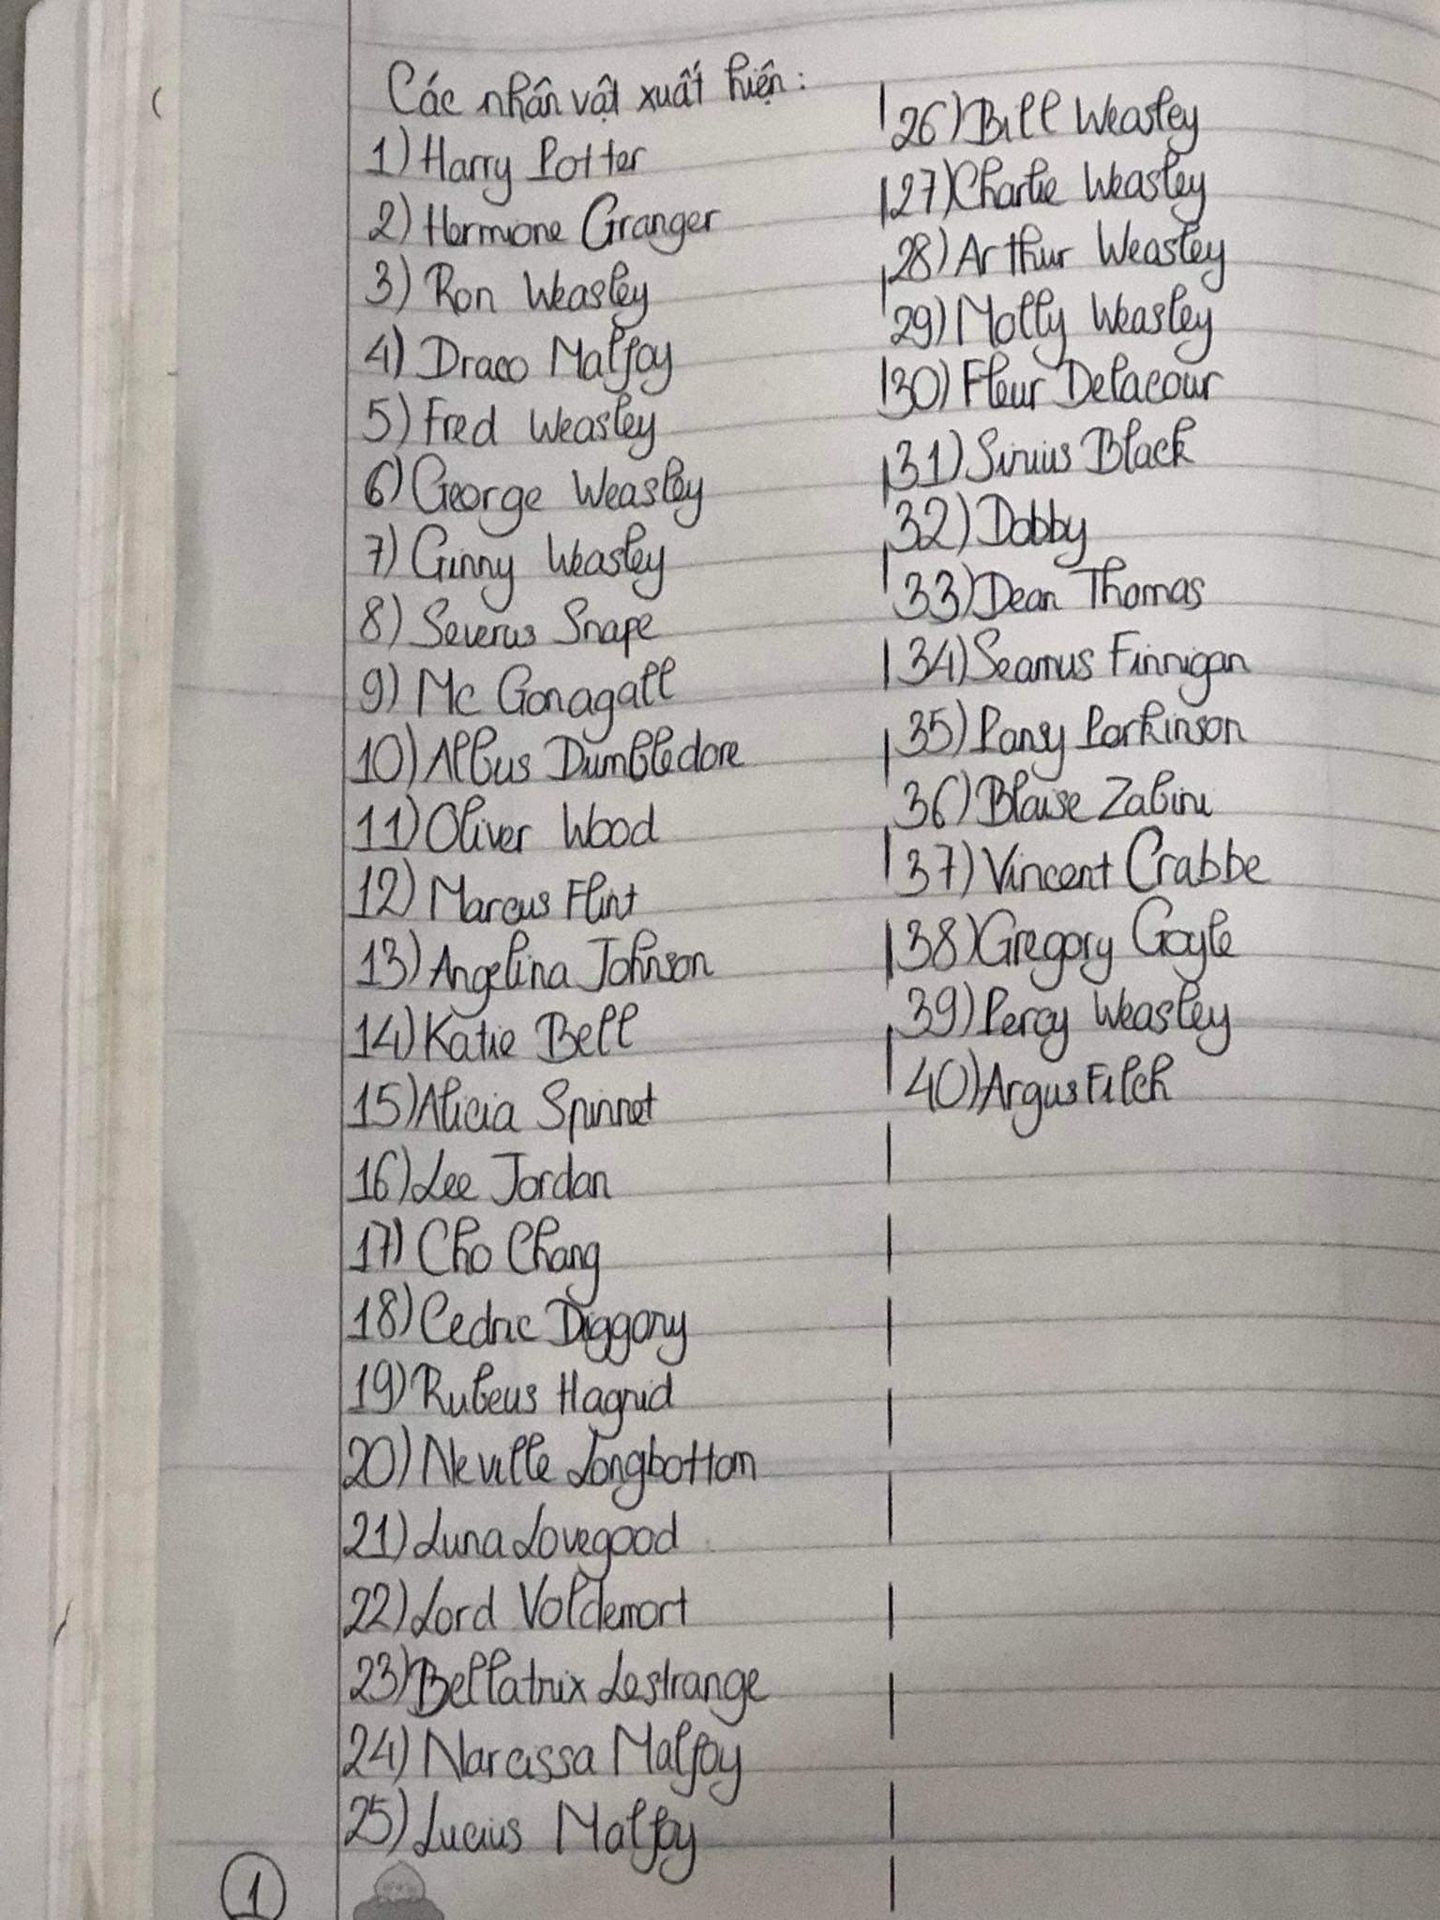 Các nhân vật xuất hiện:
1) Harry Potter
2) Hermione Granger
3) Ron Weasley
4) Draco Malfoy
5) Fred Weasley
6) George Weasley
7) Ginny Weasley
8) Severus Snape
9) Mc Gonagall
10) Albus Dumbledore
11) Oliver Wood
12) Marcus Flint
13) Angelina Johnson
14) Katie Bell
15) Alicia Spinnet
16) Lee Jordan
17) Cho Chang
18) Cedric Diggory
19) Rubeus Hagrid
20) Neville Longbottom
21) Luna Lovegood
22) Lord Voldemort
23) Bellatrix Lestrange
24) Narcissa Malfoy
25) Lucius Malfoy
26) Bill Weasley
27) Charlie Weasley
28) Arthur Weasley
29) Molly Weasley
30) Fleur Delacour
31) Sirius Black
32) Dobby
33) Dean Thomas
34) Seamus Finnigan
35) Pansy Parkinson
36) Blaise Zabini
37) Vincent Crabbe
38) Gregory Goyle
39) Percy Weasley
40) Argus Filch
1